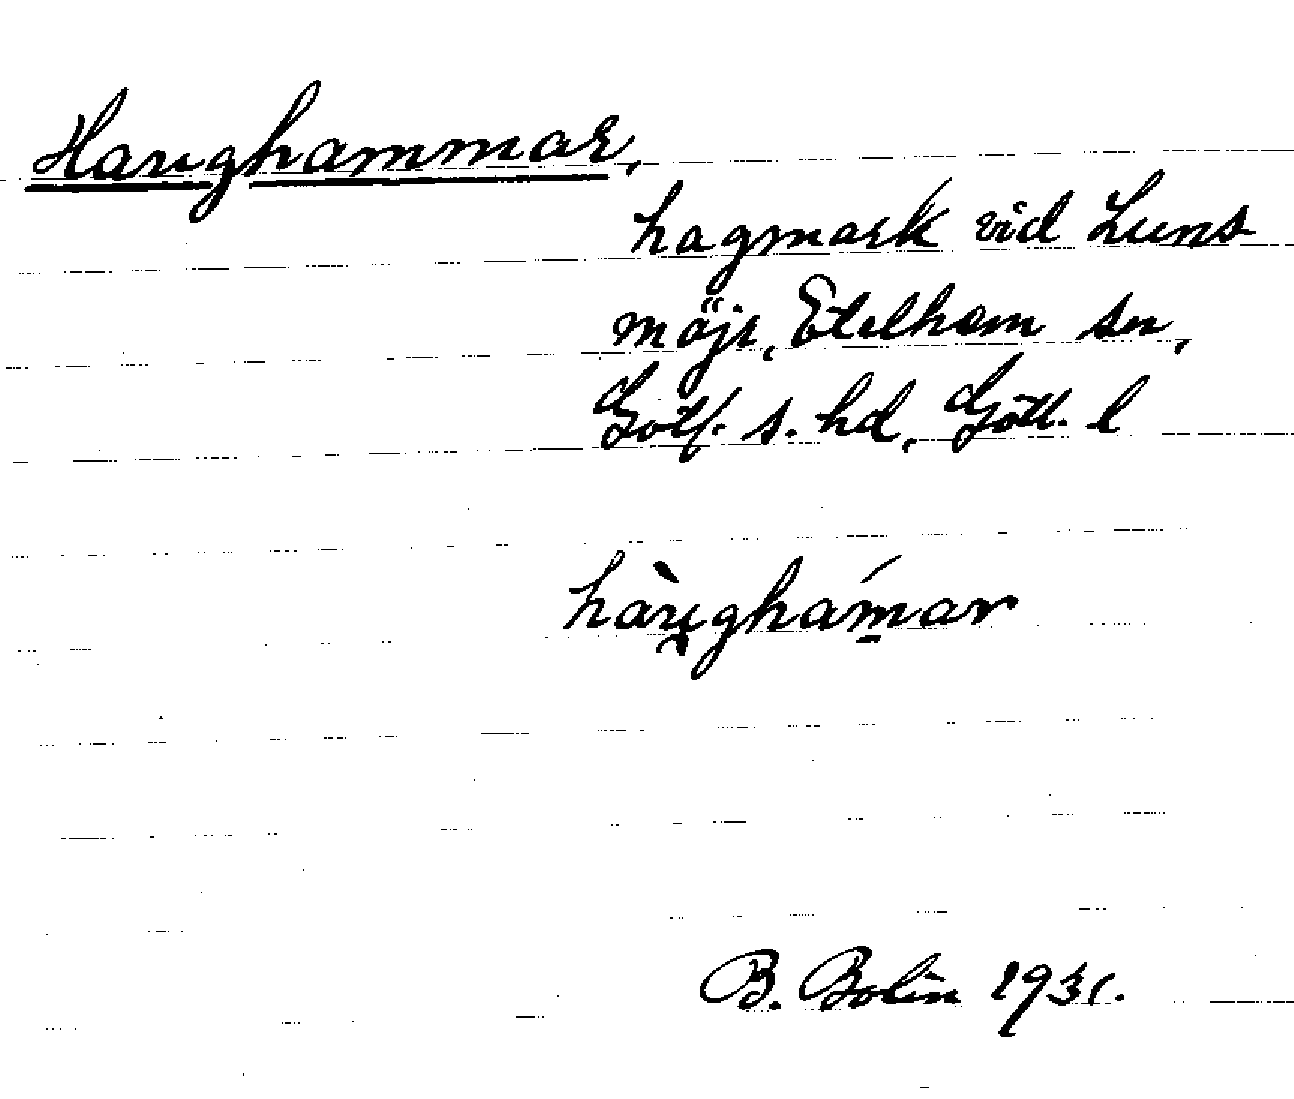 Hanghammar,
hagmark vid Luns
möjr, Etelhem sn,
Gotl. s. hd, Gotl. l
hànghámar
B. Bolin 1931.